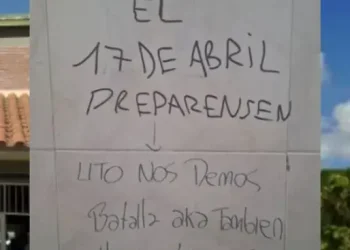 EL
17 DE ABRIL
PREPARENSEN
LITO NOS Demos
Batalla aka Tambien